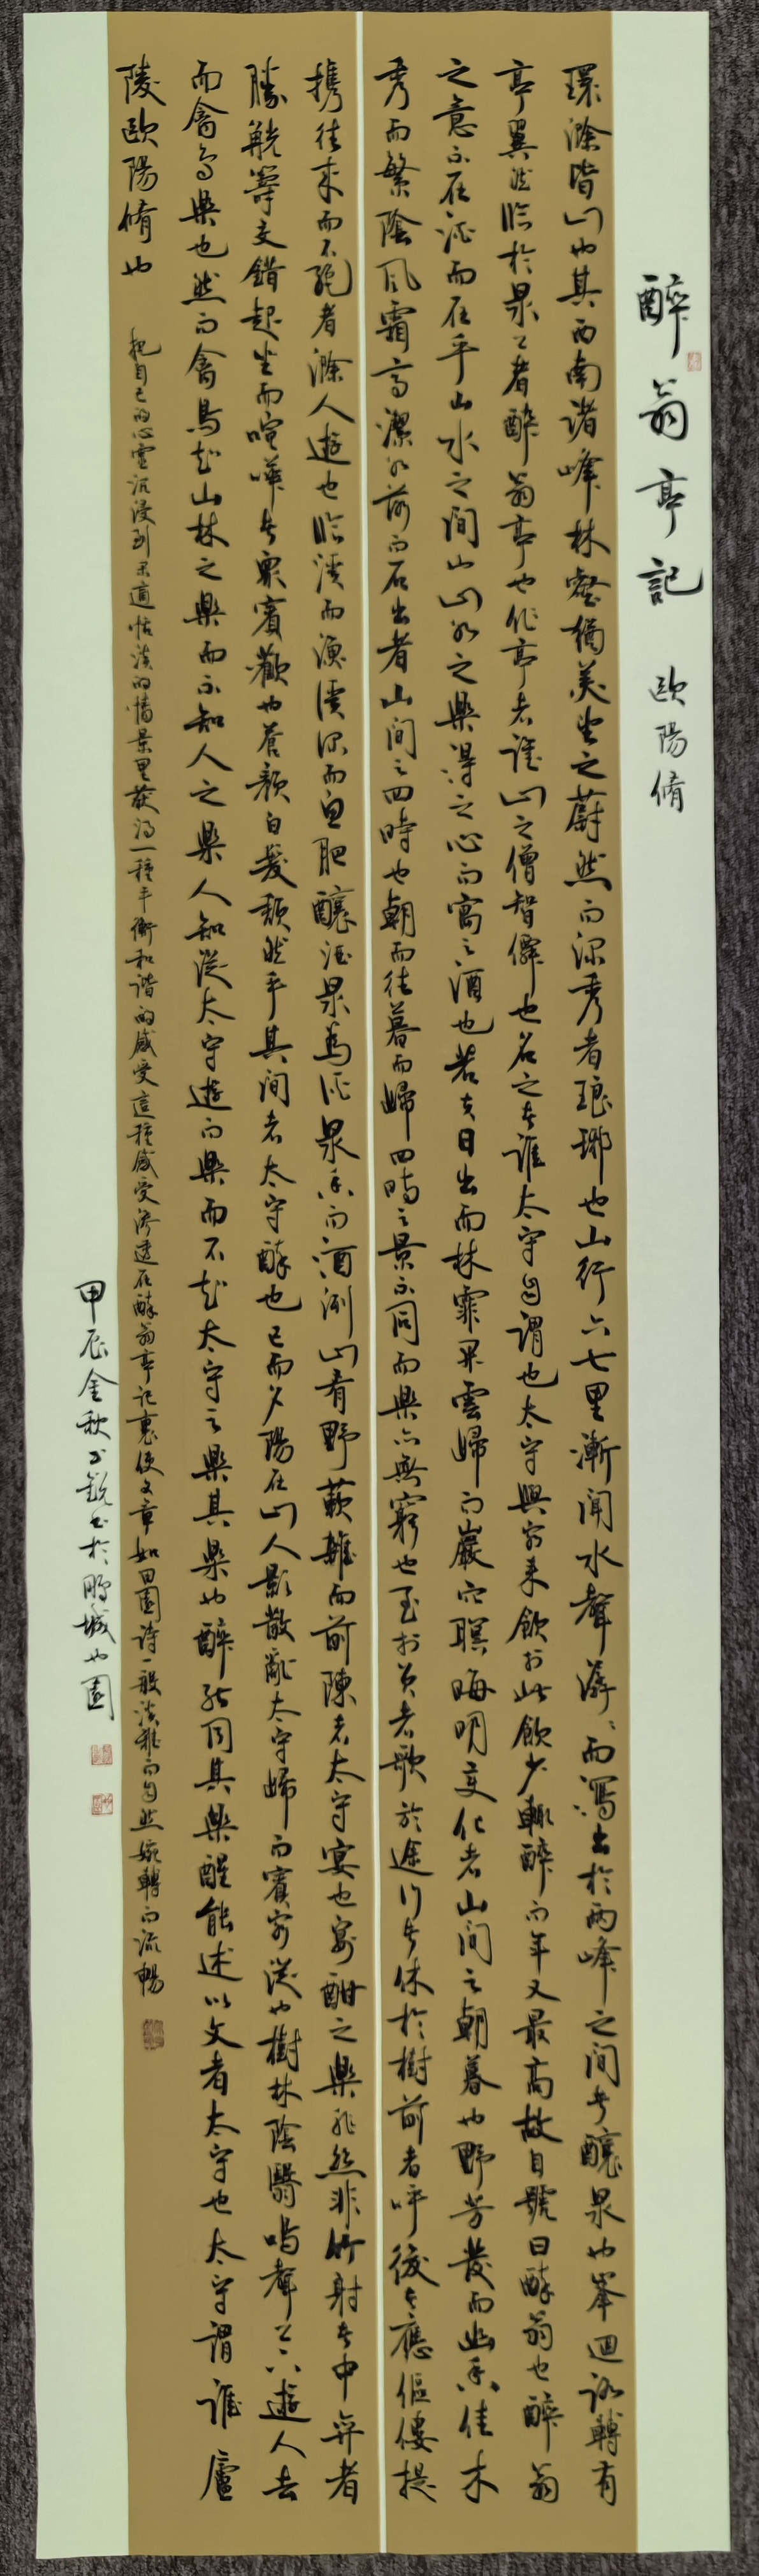 醉翁亭記 歐陽脩
環滁皆山也其西南諸峰林壑猶美望之蔚然而深秀者琅琊也山行六七里漸聞水聲潺々而瀉出於兩峰之間者釀泉也峯迴路轉有
亭翼然臨於泉上者醉翁亭也作亭者誰山之僧智僊也名之者誰太守自謂也太守與客來飲於此飲少輒醉而年又最高故自號曰醉翁也醉翁
之意不在酒而在乎山水之間也山水之樂得之心而寓之酒也若夫日出而林霏開雲歸而巖穴暝晦明變化者山間之朝暮也野芳發而幽香佳木
秀而繁陰風霜高潔水落而石出者山間之四時也朝而往暮而歸四時之景不同而樂亦無窮也至於負者歌於途行者休於樹前者呼後者應傴僂提
攜往來而不絕者滁人遊也臨溪而漁溪深而魚肥釀酒泉為酒泉香而酒洌山肴野蔌雜而前陳者太守宴也宴酣之樂非絲非竹射者中弈者
勝觥籌交錯起坐而喧嘩者眾賓歡也蒼顏白髮頹然乎其間者太守醉也已而夕陽在山人影散亂太守歸而賓客從也樹林陰翳鳴聲上下遊人去
而禽鳥樂也然而禽鳥知山林之樂而不知人之樂人知從太守遊而樂而不知太守之樂其樂也醉能同其樂醒能述以文者太守也太守謂誰廬
陵歐陽脩也
把自己的心靈沉浸到閑適恬淡的情景裏獲得一種平衡和諧的感受這種感受滲透在醉翁亭記裏使文章如田園詩一般淡雅而自然婉轉而流暢
甲辰金秋 銳書於鵬城 園